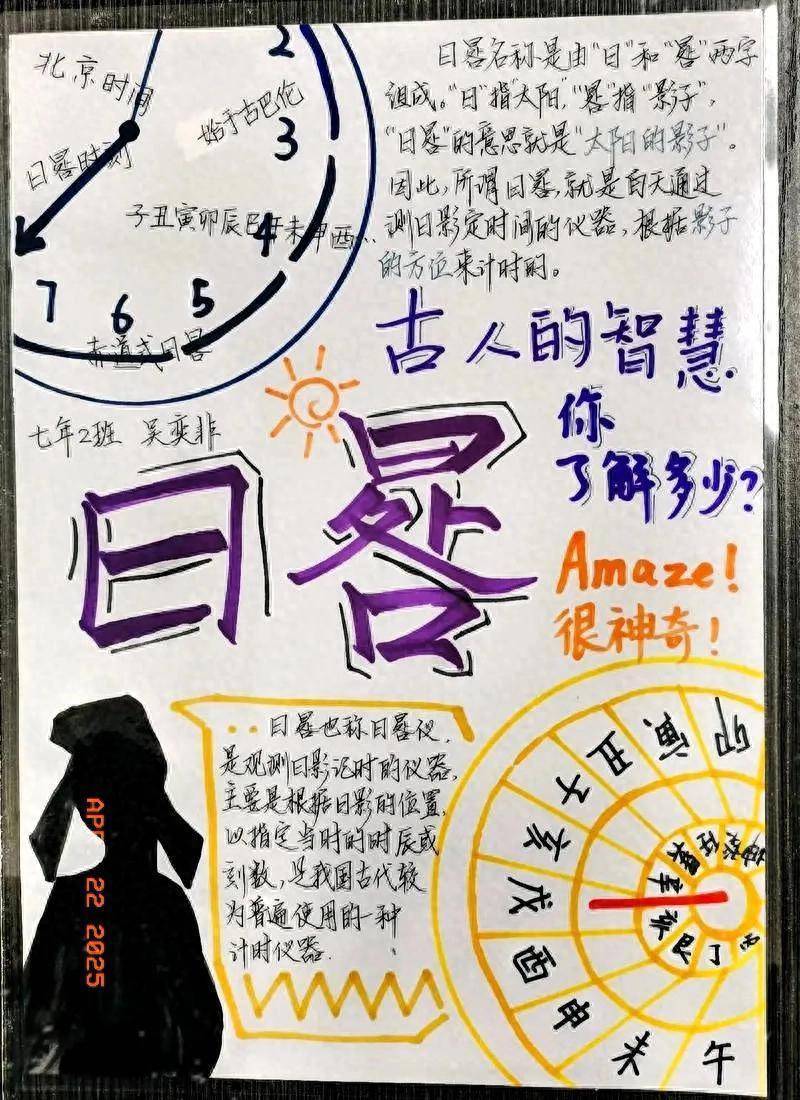 北京时间
日晷时刻
始于古巴伦
2
3
4
5
6
7
子丑寅卯辰巳午未申酉...
赤道式日晷
日晷名称是由“日”和“晷”两字
组成。“日”指“太阳”,“晷”指“影子”,
“日晷”的意思就是“太阳的影子”。
因此,所谓日晷,就是白天通过
测日影定时间的仪器,根据影子
的方位来计时的。
古人的智慧
你
了解多少?
七年2班 吴奕非
日晷
Amaze!
很神奇!
日晷也称日晷仪,
是观测日影记时的仪器,
主要是根据日影的位置,
以指定当时的时辰或
刻数,是我国古代较
为普遍使用的一种
计时仪器.
卯
寅
丑
子
亥
戌
酉
申
未
午
艮
丁
丙
22 2025